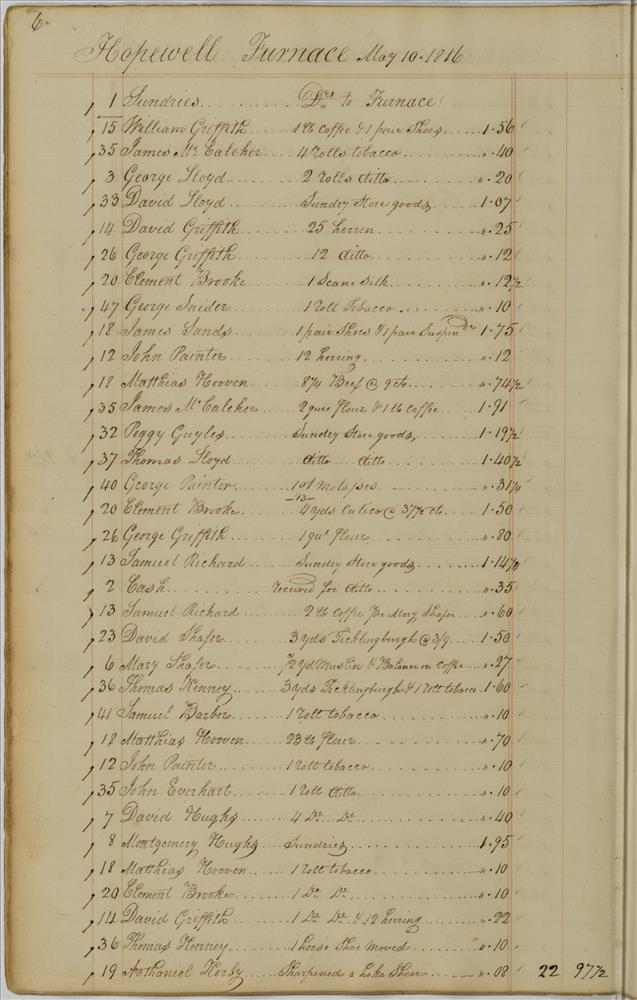 6
Hopewell Furnace May 10. 1816
1 Sundries Drs to Furnace
15 William Griffith 1 lb Coffee & 1 pair Shoes 1.56
35 James Mc Caleher 4 Rolls tobacco ". 40
3 George Lloyd 2 rolls ditto ". 20
33 David Lloyd Sundry Store goods 1.07
14 David Griffith 25 herren ". 25
26 George Griffith 12 ditto ". 12
20 Clement Brooke 1 Scane Silk ". 12 1/2
47 George Snider 1 Roll Tobacco ". 10
18 James Sands 1 pair Shoes & 1 pair Suspendrs 1.75
12 John Painter 12 herring ". 12
18 Matthias Hooven 8 1/4 Beef @ 9 cts ". 74 1/2
35 James Mc Caleher 2 flour & 1 lb Coffee 1.91
32 Peggy Guyles Sundry Store goods 1.19 1/2
37 Thomas Lloyd ditto ditto 1.40 1/2
40 George Painter 1 qt Molasses ". 31 1/4
13
20 Clement Brooke 4 yds Calico @ cts 1.50
26 George Griffith 1 qur flour ". 80
13 Samuel Richard Sundry Store goods 1.14 1/2
2 Cash received for ditto ". 35
13 Samuel Richard 2 lb Coffee Per Mary Shafer ". 60
23 David Shafer 3 yds Ticklingburgh @ 3/9 1.50
6 Mary Shafer 1/2 yd Muslin & Balance on Coffee ". 27
36 Thomas Kenney 3 yds Ticklingburgh & 1 Roll tobacco 1.60
41 Samuel Barber 1 Roll tobacco ". 10
18 Matthias Hooven 23 lb flour ". 70
12 John Painter 1 Roll tobacco ". 10
35 John Everhart 1 Roll ditto ". 10
7 David Hughs 4 Do Do ". 40
8 Montgomery Hughs Sundries 1.95
18 Matthias Hooven 1 Roll tobacco ". 10
20 Clement Brooke 1 Do Do ". 10
14 David Griffith 1 Do Do & 12 herring ". 22
36 Thomas Kenney 1 horse Shoe moved ". 10
19 Nathaniel Kerby Sharpened a Shear ". 08 22 97 1/2